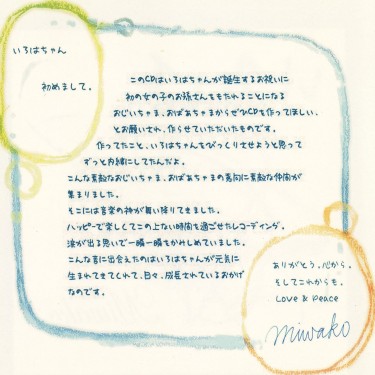 いろはちゃん
初めまして。
このCDはいろはちゃんが誕生するお祝いに
初の女の子のお孫さんをもたれることになる
おじいちゃま、おばあちゃまからぜひCDを作ってほしい、
とお願いされ、作らせていただいたものです。
作ってたこと、いろはちゃんをびっくりさせようと思って
ずっと内緒にしてたんだよ。
こんな素敵なおじいちゃま、おばあちゃまの意向に素敵な仲間が
集まりました。
そこには音楽の神が舞い降りてきました。
ハッピーで楽しくてこの上ない時間を過ごせたレコーディング。
涙が出る思いで一瞬一瞬をかみしめていました。
こんな音に出会えたのはいろはちゃんが元気に
生まれてきてくれて、日々、成長されているおかげ
なのです。
ありがとう。心から。
そしてこれからも。
Love & Peace
miwako